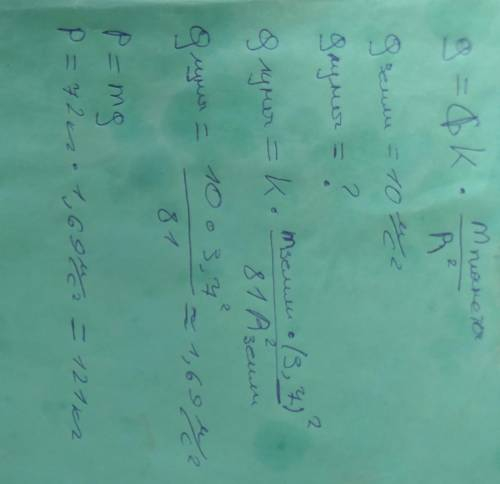 g = K · m планета / R²
g земли = 10 м/с²
g луны = ?
g луны = K · m земли · (3,7)² / 81 R² земли
g луны = 10 · 3,7² / 81 ≈ 1,69 м/с²
P = mg
P = 72 кг · 1,69 м/с² = 121 кг